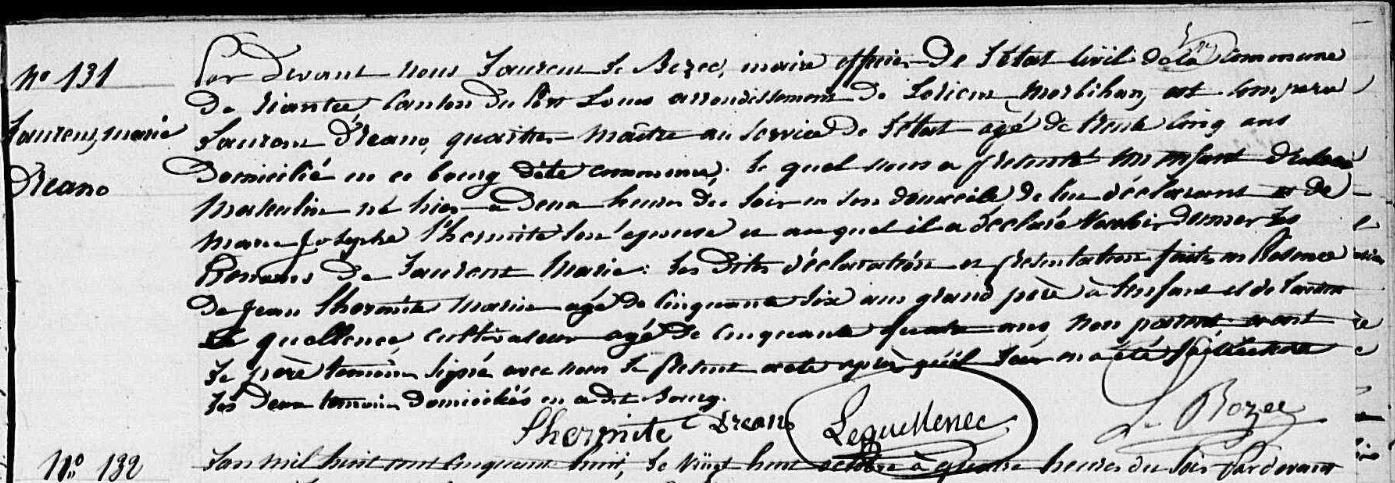 N° 131
Laurent, marie
Dréano
Par Devant nous Laurent Le Bozec, maire officier De l'état Civil de la Commune
De riantec Canton du Port Louis arrondissement De Lorient Morbihan, est Comparu
Laurent Dréano, quartier maître au service De l'état agé de trente Cinq ans
Domicilié en ce bourg dite commune. Le quel nous a présenté un enfant Du sexe
Masculin né hier à Deux heures du Soir en son domicile, de lui déclarant et de
Marie Josephe Lhermite son épouse et auquel il a déclaré Vouloir donner les
Prénoms De Laurent Marie : Les Dites déclaration et présentation faites en Présence
De Jean Lhermite marin agé de Cinquante Six ans grand père à l'enfant et de
Le quellenec cultivateur agé De cinquante quatre ans non parent
Le père témoin Signé avec nous Le présent acte après qu'il leur en a été fait lecture
Les Deux témoins Domiciliés en a dit Bourg.
Lhermite Dreano Lequellenec Le Bozec
N° 132
L'an mil huit cent cinquante huit, Le vingt huit octobre à quatre heures du Soir Par devant